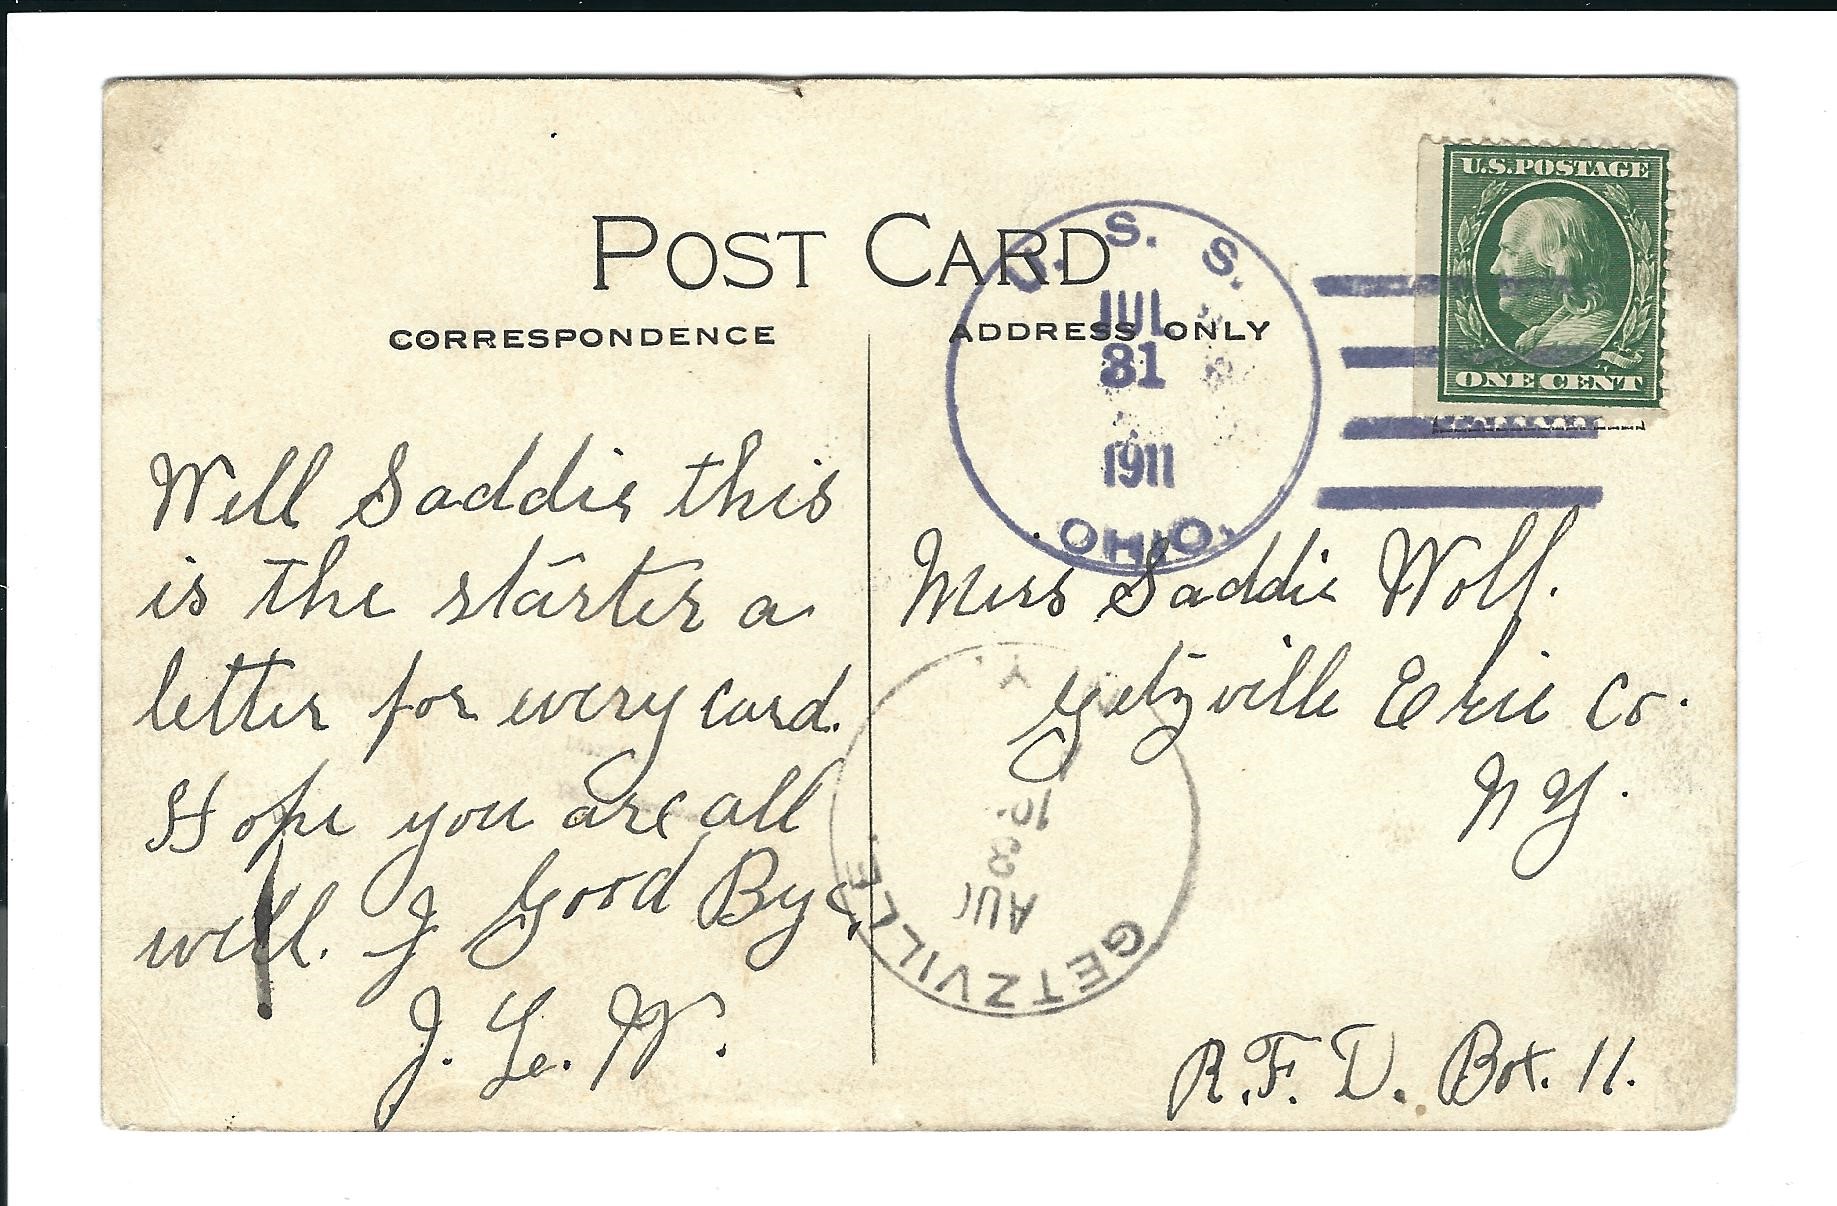 POST CARD
CORRESPONDENCE
ADDRESS ONLY
U.S.POSTAGE
ONE CENT
U. S. S.
JUL
31
1911
OHIO.
Well Saddie this
is the starter a
letter for every card.
Hope you are all
well. J Good Bye,
J. Le. W.
Miss Saddie Wolf.
Getzville Erie Co.
N Y.
R.F.D. Box. 11.
GETZVILLE.
N. Y.
AUG
3
10